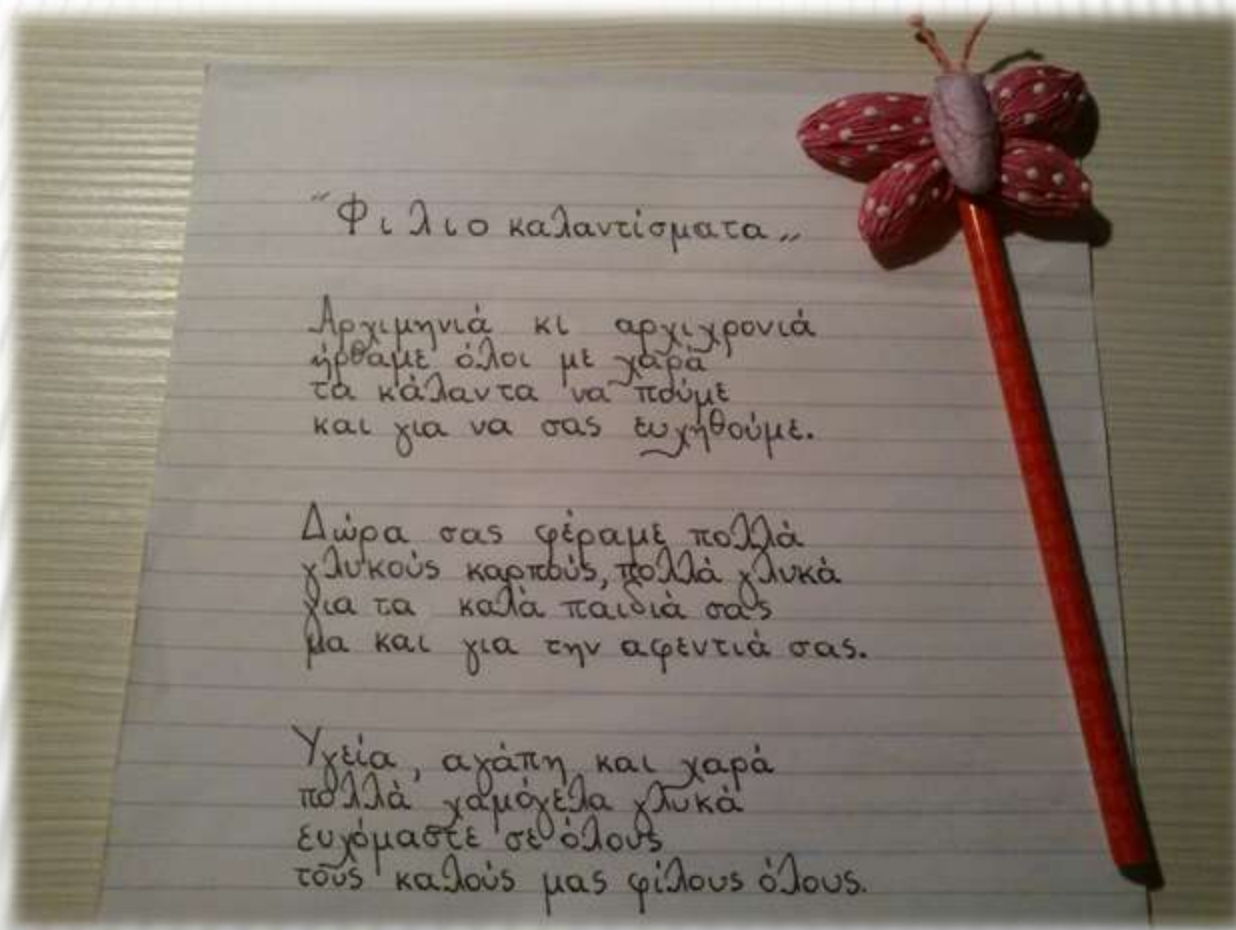 "Φιλιο καλαντίσματα"
Αρχιμηνιά κι αρχιχρονιά
ήρθαμε όλοι με χαρά
τα κάλαντα να πούμε
και για να σας ευχηθούμε.
Δώρα σας φέραμε πολλά
γλυκούς καρπούς, πολλά γλυκά
για τα καλά παιδιά σας
μα και για την αφεντιά σας.
Υγεία, αγάπη και χαρά
πολλά χαμόγελα γλυκά
ευχόμαστε σε όλους
τους καλούς μας φίλους όλους.